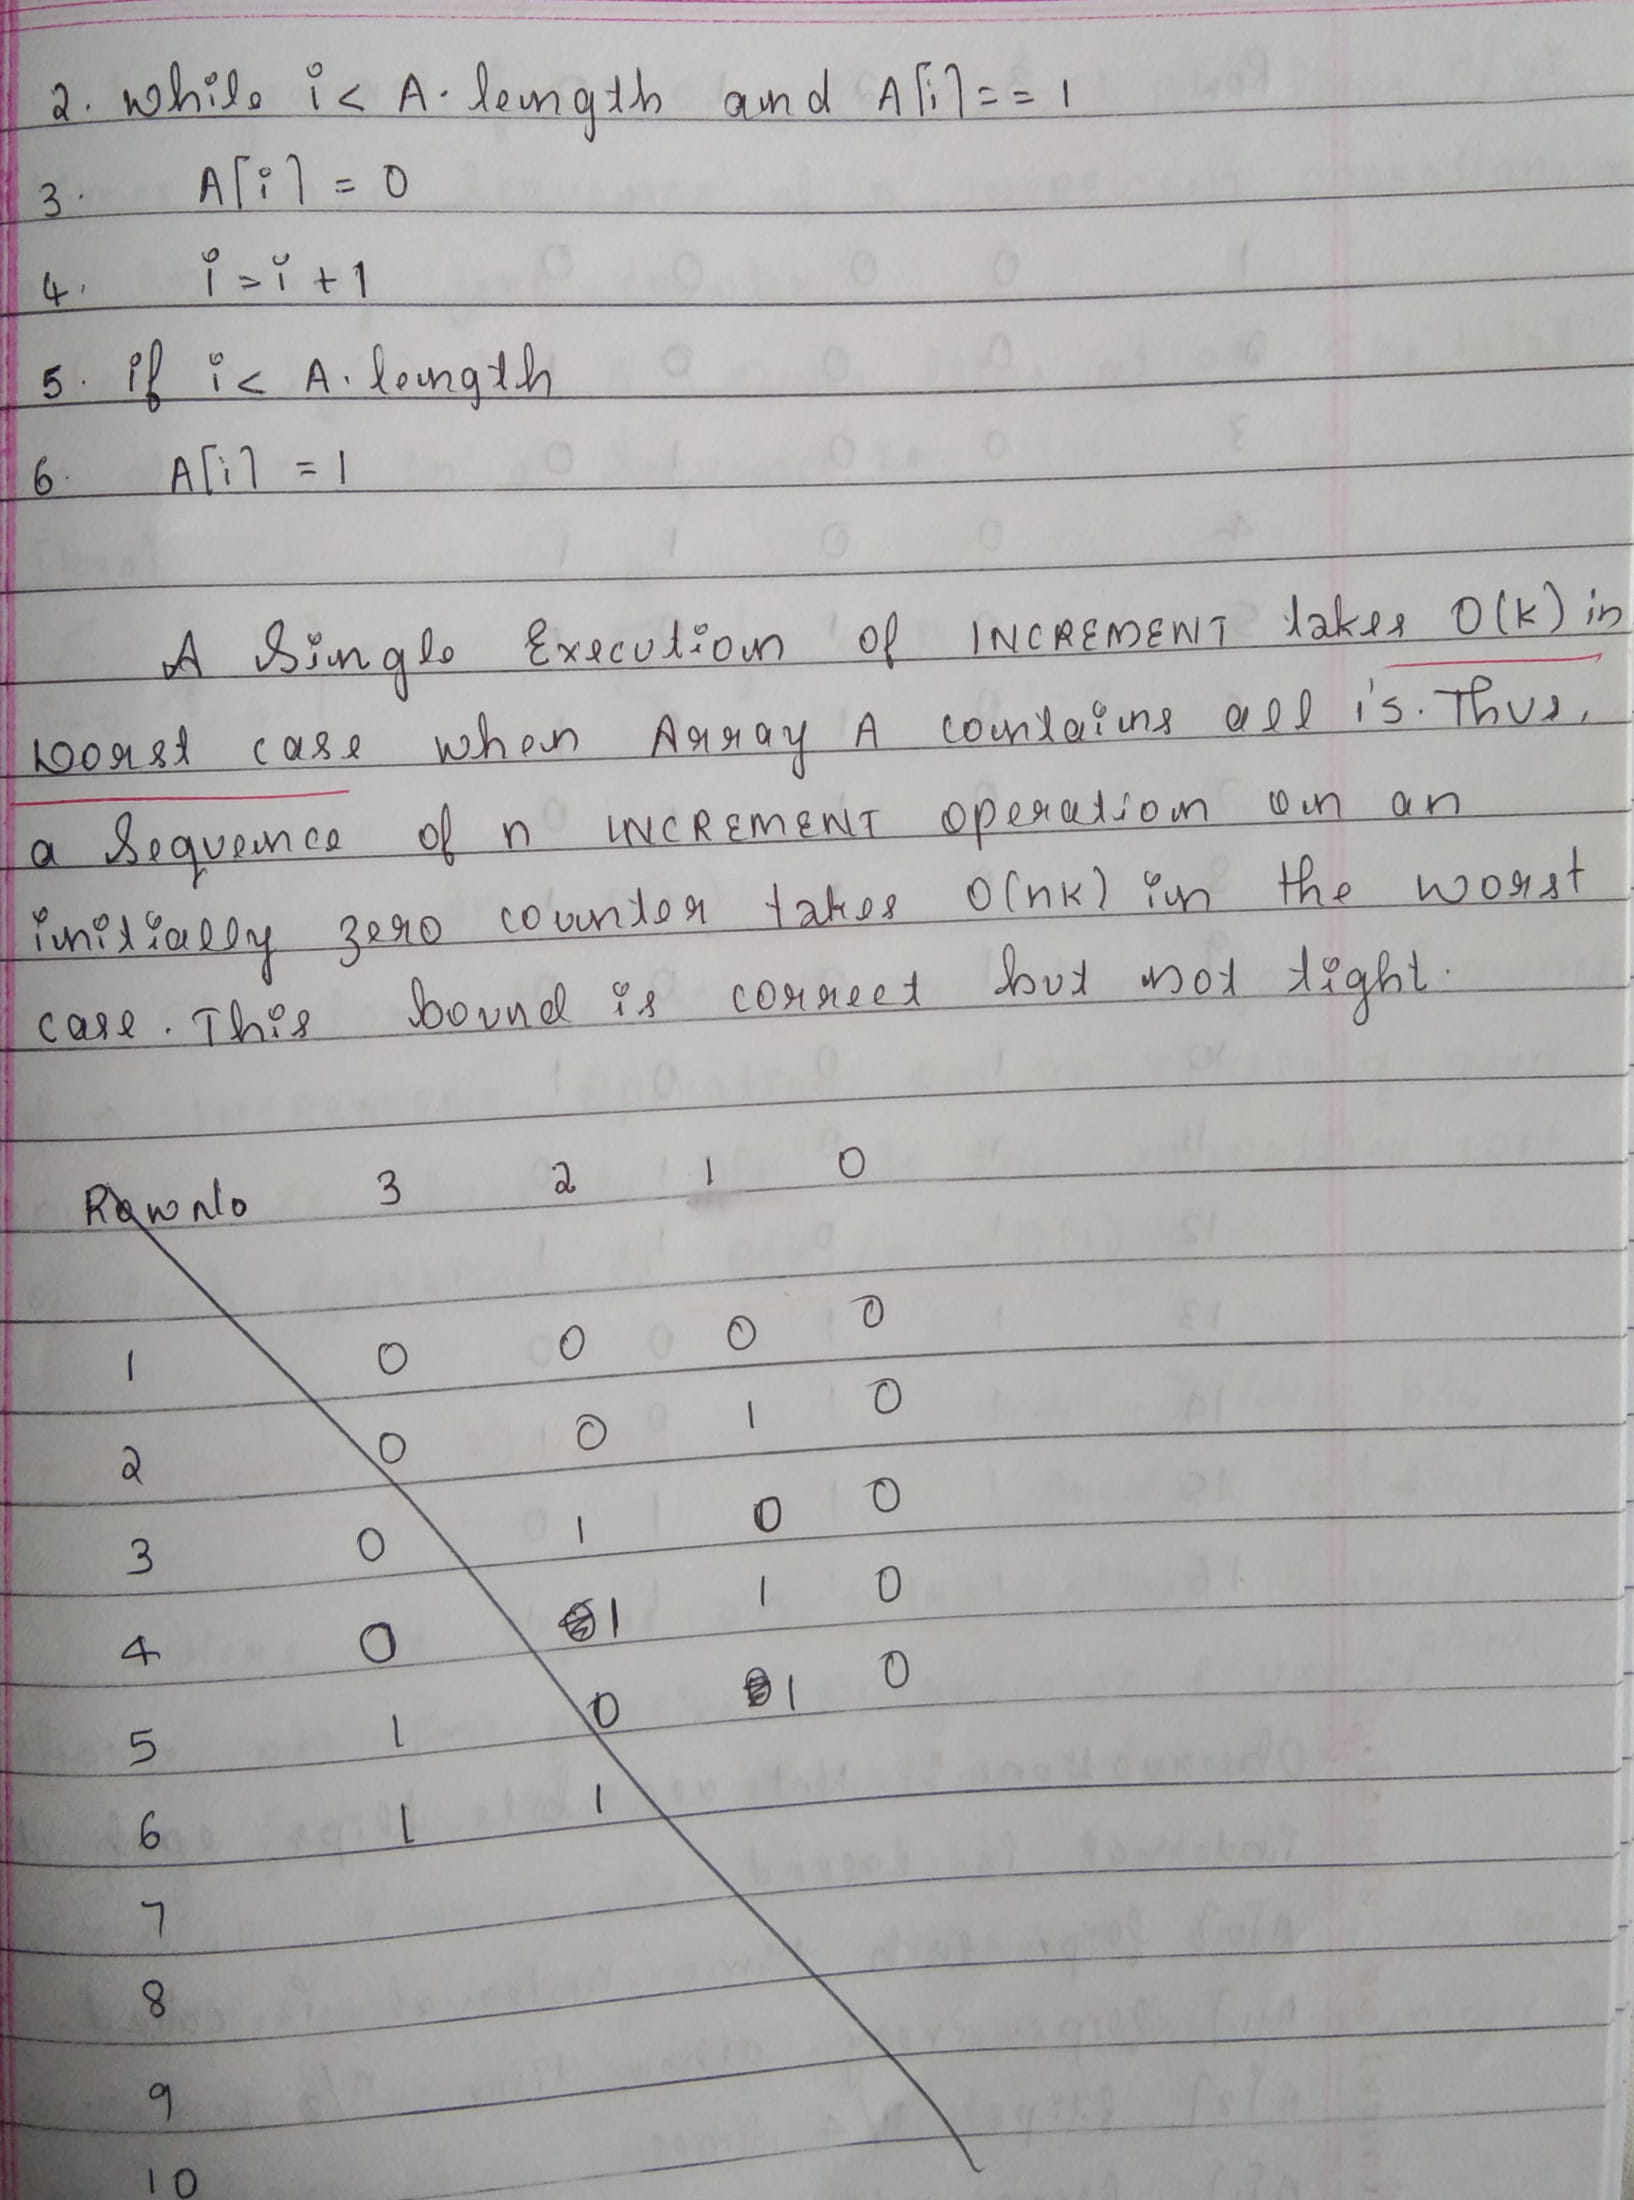 2. While i < A. length and A[i] == 1
3. A[i] = 0
4. i = i + 1
5. if i < A. length
6. A[i] = 1
A Single Execution of INCREMENT takes O(k) in
worst case when Array A contains all 1's. Thus,
a Sequence of n INCREMENT operation on an
initially zero counter takes O(nk) in the worst
case. This bound is correct but not tight.
Row No 3 2 1 0
1 0 0 0 0
2 0 0 1 0
3 0 1 0 0
4 0 1 1 0
5 1 0 1 0
6 1 1
7
8
9
10